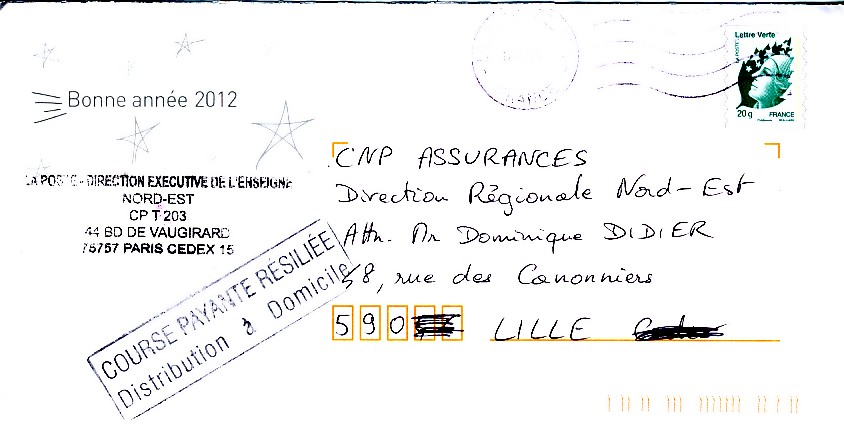 Lettre Verte
LA POSTE
20g FRANCE
Bonne année 2012
LA POSTE - DIRECTION EXECUTIVE DE L'ENSEIGNE
NORD-EST
CP T 203
44 BD DE VAUGIRARD
75757 PARIS CEDEX 15
COURSE PAYANTE RÉSILIÉE
Distribution à Domicile
CNP ASSURANCES
Direction Régionale Nord-Est
Attn. Mr Dominique DIDIER
58, rue des Canonniers
590 LILLE